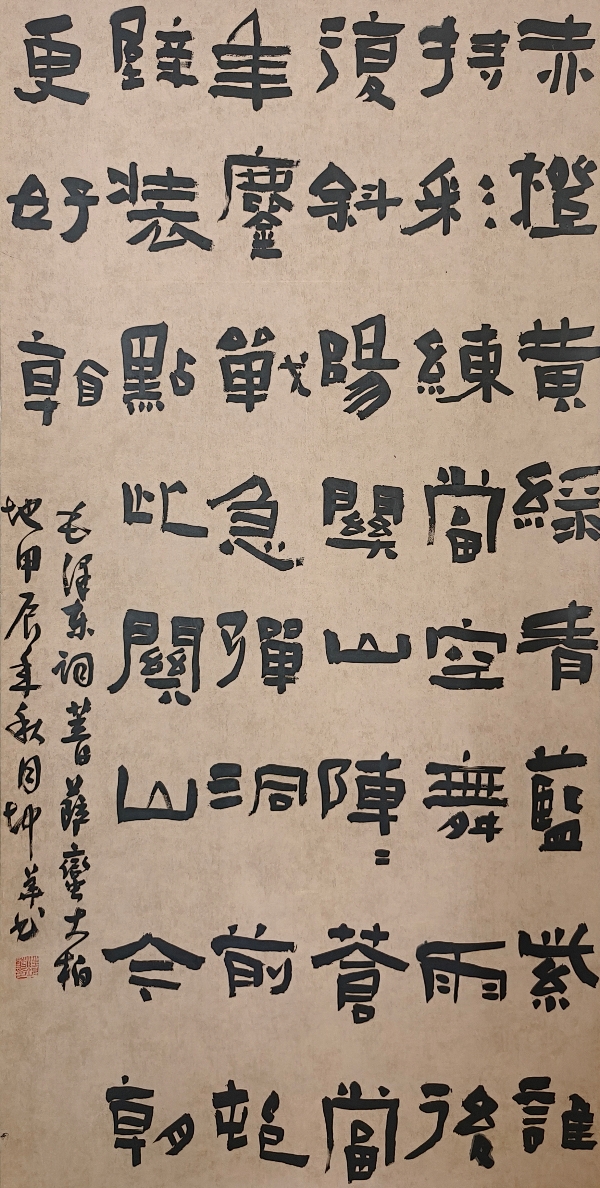 赤橙黃綠青藍紫誰
持彩練當空舞雨後
復斜陽關山陣〻蒼當
年鏖戰急彈洞前邨
壁裝點此關山今朝
更好看
毛泽东詞菩薩蠻大柏
地甲辰年秋月坤书